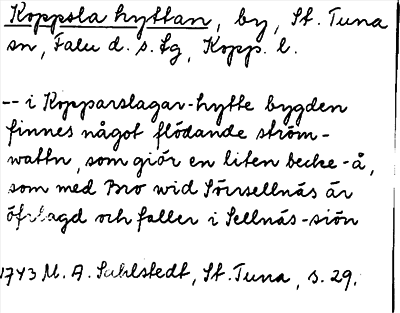 Koppsla hyttan, by, St. Tuna
sn, Falu d. s. lg, Kopp. l.
-- i Kopparslagar-hytte bygden
finnes något flödande ström-
wattn, som giör en liten becke-å,
som med Bro wid Sörsellnäs är
öfrlagd och faller i Sellnäs-siön
1743 M. A. Sahlstedt, St. Tuna, s. 29.